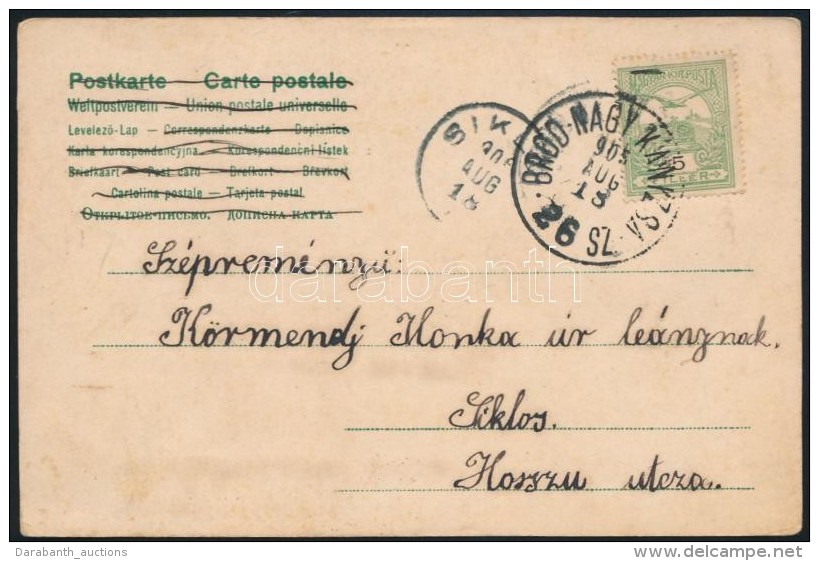 Postkarte — Carte postale
Weltpostverein — Union postale universelle
Levelező-Lap — Correspondenzkarte — Dopisnice
Karta korespondencyjna — Korespondenční lístek
Briefkaart — Post card — Brefkort — Brevkort
Cartolina postale — Tarjeta postal
Открытое письмо. дописна карта
SIK
906
AUG
18
BRÓD-NAGY KANIZSA
905
AUG
18
26 SZ.
MAGYAR KIR. POSTA
5
Szépreményű:
Körmendj Ilonka úr leángnak.
Siklos.
Hosszu utcza.
darabanth
Darabanth_auctions
http://www.delcampe.net